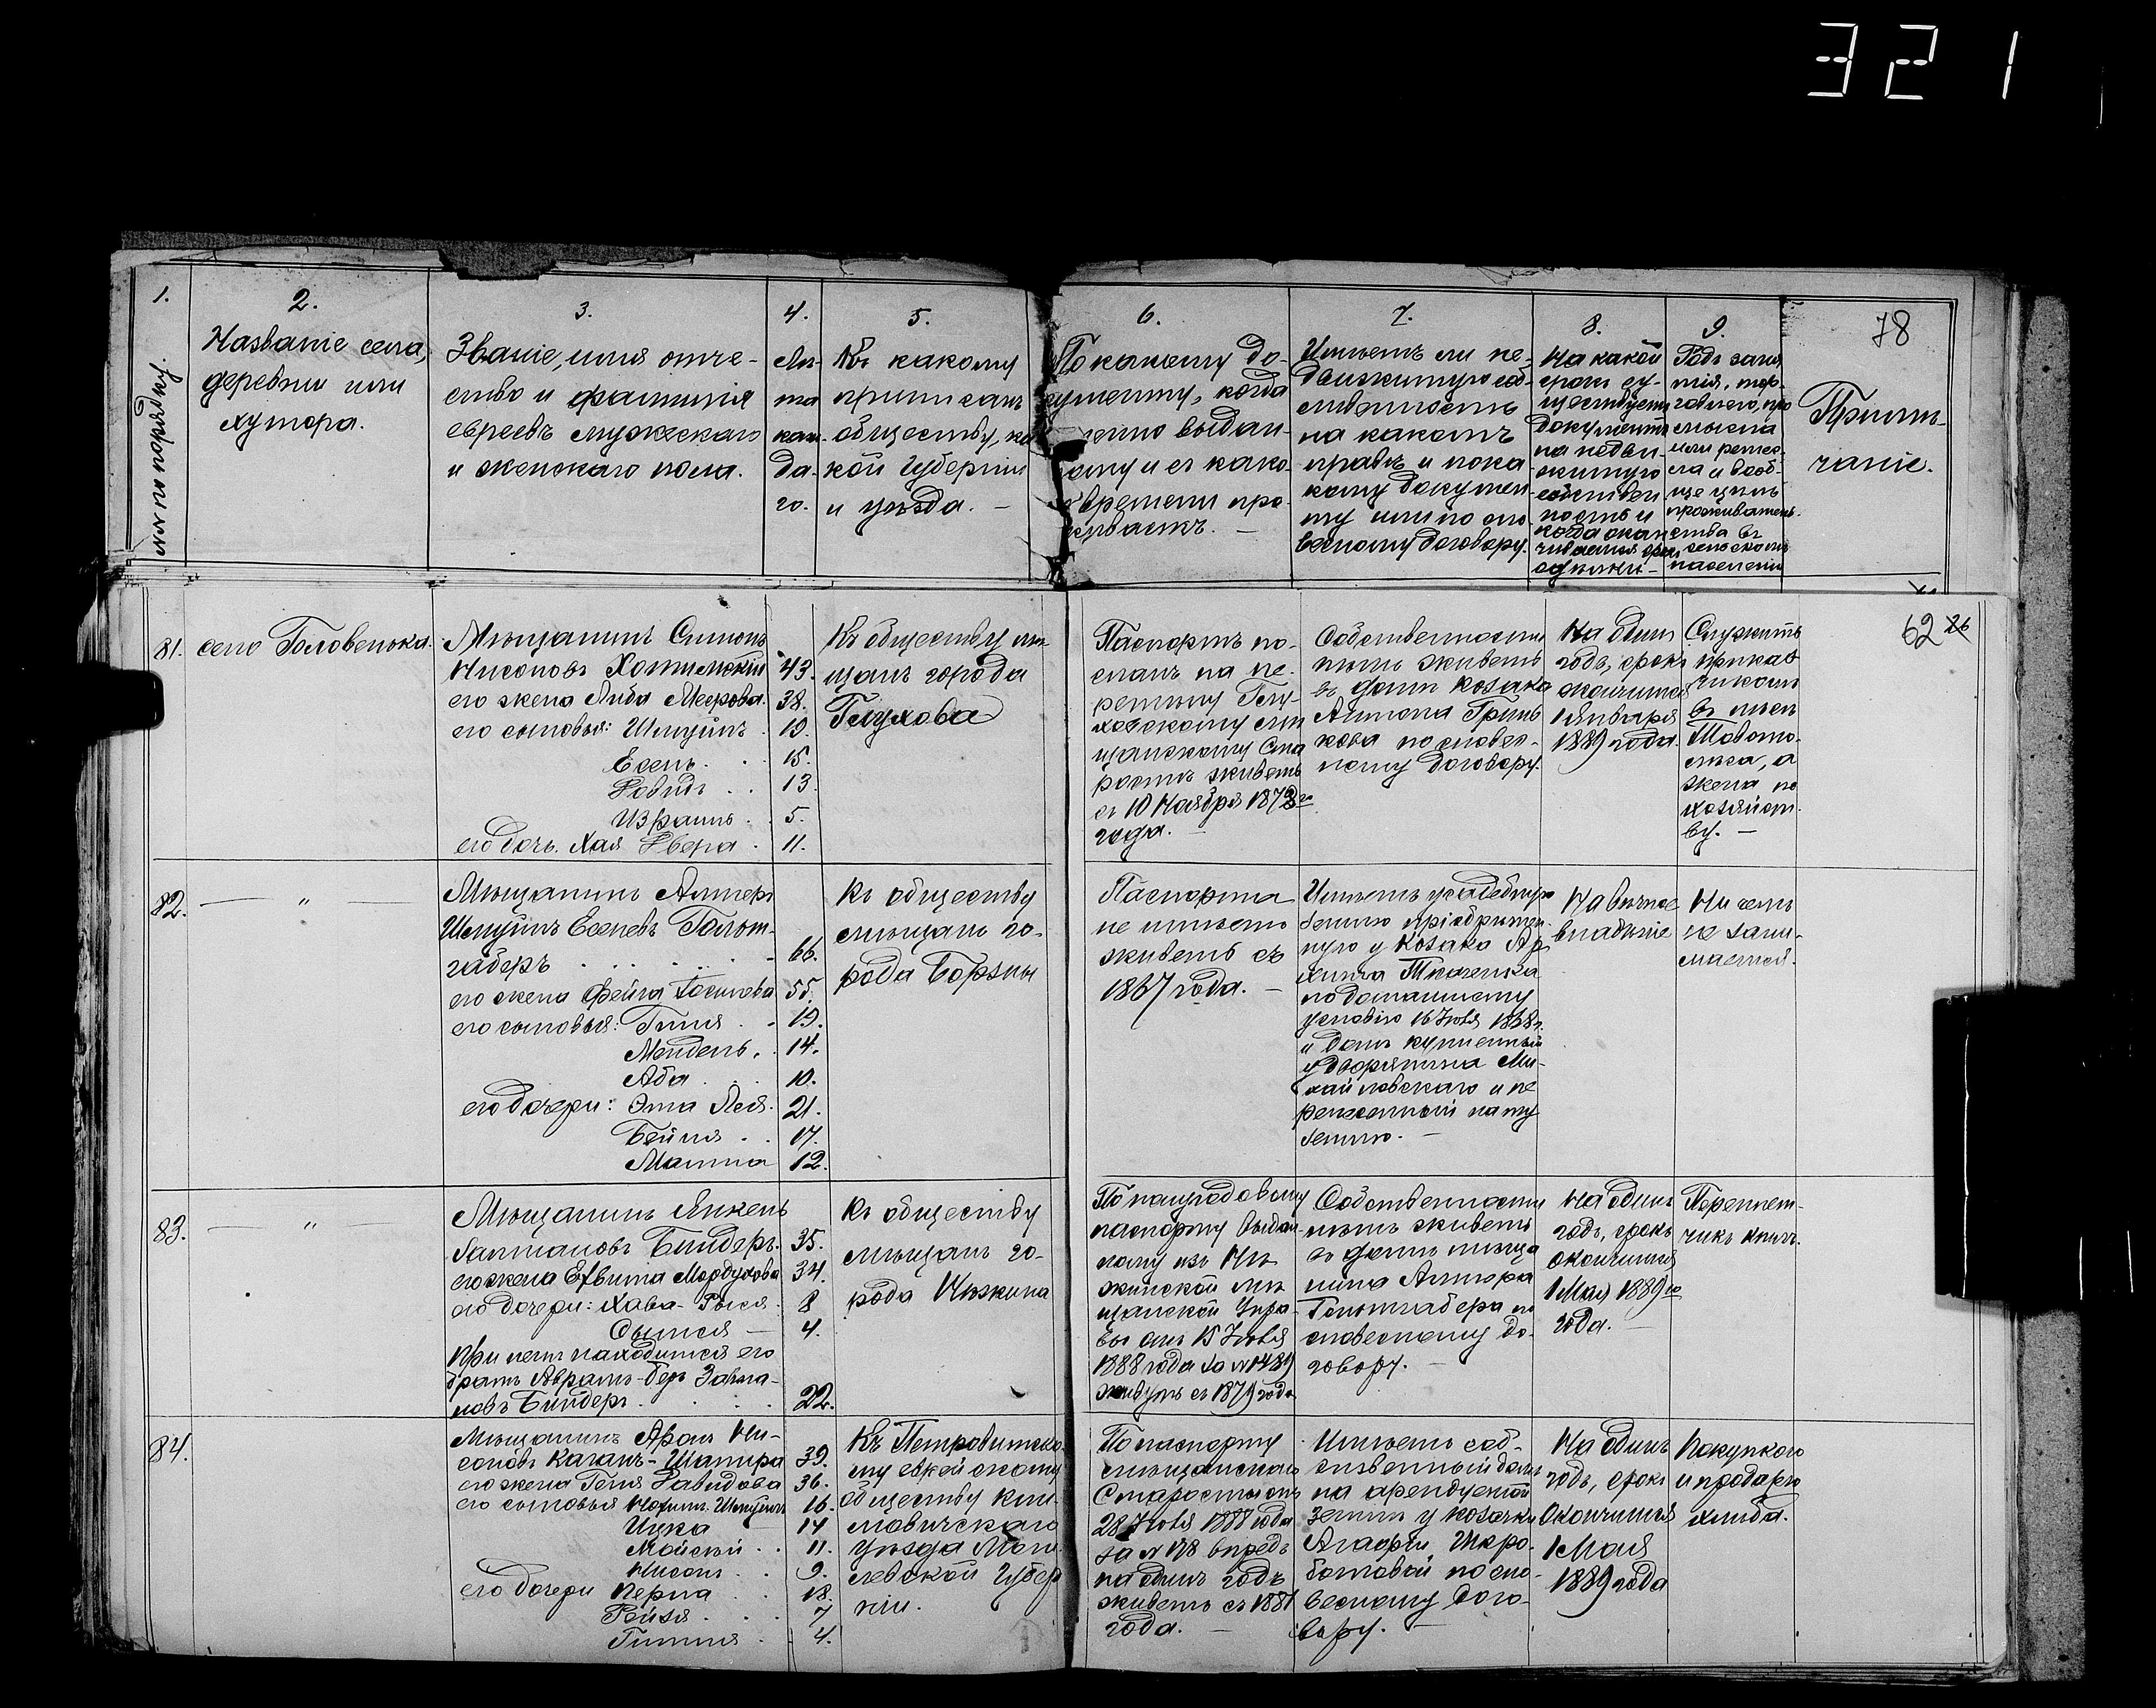 321
78
1.
№№ по порядку.
2.
Названіе села,
деревни или
хутора.
3.
Званіе, имя отче-
ство и фамилія
евреевъ мужескаго
и женскаго пола.
4.
Лѣ-
та
каж-
да-
го.
5.
Къ какому
приписанъ
обществу, ка
кой губерніи
и уѣзда. —
6.
По какому до-
кументу, когда
выдан-
ному и съ како
времени про-
живаетъ. —
7.
Имѣетъ ли не-
движимую соб-
ственность
на какомъ
правѣ и по ка
кому докумен-
ту или по сло-
весному договору.
8.
На какой
срокъ су-
ществуетъ
документъ
на недви-
жимую
собствен
ность и
когда окан
чивается срокъ
9.
Родъ заня
тія, тор-
говлею, про
мысла
или ремес-
ла и вооб-
ще цѣль
прожинатель-
ства въ
сельскомъ
населеніи
Примѣ-
чаніе.
62 26
81.
село Головенька.
Мѣщанинъ Симонъ
Нисоновъ Хотимскій 43.
его жена Либа Меерова. 38.
его сыновья: Шмуйлъ . 19.
Есель . . 15.
Довидъ . . 13.
Израиль . . 5.
его дочь. Хая Двера . 11.
Къ обществу мѣ-
щанъ города
Глухова
Паспортъ по-
сланъ на пе-
ремѣну Глу-
ховскому мѣ
щанскому Ста
ростѣ живетъ
съ 10 Ноября 1873го
года. —
Собственности
живетъ
въ домѣ козака
Антона Гринь
кова по словес-
ному договору.
На одинъ
годъ, срокъ
окончится
1 Января
1889 года.
Служитъ
приказ
чикомъ
въ
а
жена по
хозяйст-
ву. —
82.
— " —
Мѣщанинъ Алтеръ
Шмуйлъ Еселевъ Гольт-
габеръ . . . . . 66.
его жена Фейга Іосилева 55.
его сыновья: Гиля . . 19.
Мендель. . 14.
Аба . . . 10.
его дочери: Эта Лея. 21.
Бейля . . 17.
Матля 12.
Къ обществу
мѣщанъ го-
рода Борзны
Паспорта
не имѣетъ
живетъ съ
1867 года. —
Имѣетъ усадебную
землю пріобрѣтен-
ную у козака Ар
хипа Ткаченка
по домашнему
условію 16 Іюля 1868 г.
и домъ купленный
у дворянина Ми-
хайловскаго и пе
ренесенный на ту
землю. —
На вѣчное
владѣніе
Ничемъ
не зани-
мается.
83.
— " —
Мѣщанинъ Янкель
Залмановъ Биндеръ. 35.
его жена Мордухова 34.
его дочери: Хава-Рыся. 8
Сымся — 4.
При немъ находится его
братъ Авраамъ-Беръ Залма-
новъ Биндеръ . . . . 22.
Къ обществу
мѣщанъ го-
рода Нѣжина
По полугодовому
паспорту выдан-
ному изъ Нѣ
жинской мѣ
щанской Упра-
вы отъ 15 Іюля
1888 года за № 1489
живутъ съ 1879 года
Собственности
живетъ
въ домѣ мѣща
нина Алтера
Гольтгабера по
словесному до-
говору. —
На одинъ
годъ, срокъ
окончится
1 Мая 1889го
года. —
Переплет-
чикъ книгъ.
84.
Мѣщанинъ Аронъ Ни-
соновъ Каганъ-Шапира 39.
его жена Геня Давидова 36.
его сыновья Нохимъ. Шмуйлъ 16.
Ицка 14
Мойсей . . 11.
Нисонъ . . 9.
его дочери Перла . . 18.
Рейзя . . . 7
Гитля . . 4.
Къ Петровитско-
му еврейскому
обществу Кли-
мовичскаго
Уѣзда Моги-
левской Губер
ніи.
По паспорту
мѣщанскаго
Старосты отъ
28 Іюля 1888 года
за № 178 впредь
на одинъ годъ
живетъ съ 1881
года. —
Имѣетъ соб-
ственный домъ
на арендуемой
землѣ у козачки
Агафіи Шкро-
ботовой по сло-
весному дого-
вору. —
На одинъ
годъ, срокъ
окончится
1 Мая
1889 года
Покупкою
и продажею
хлѣба.